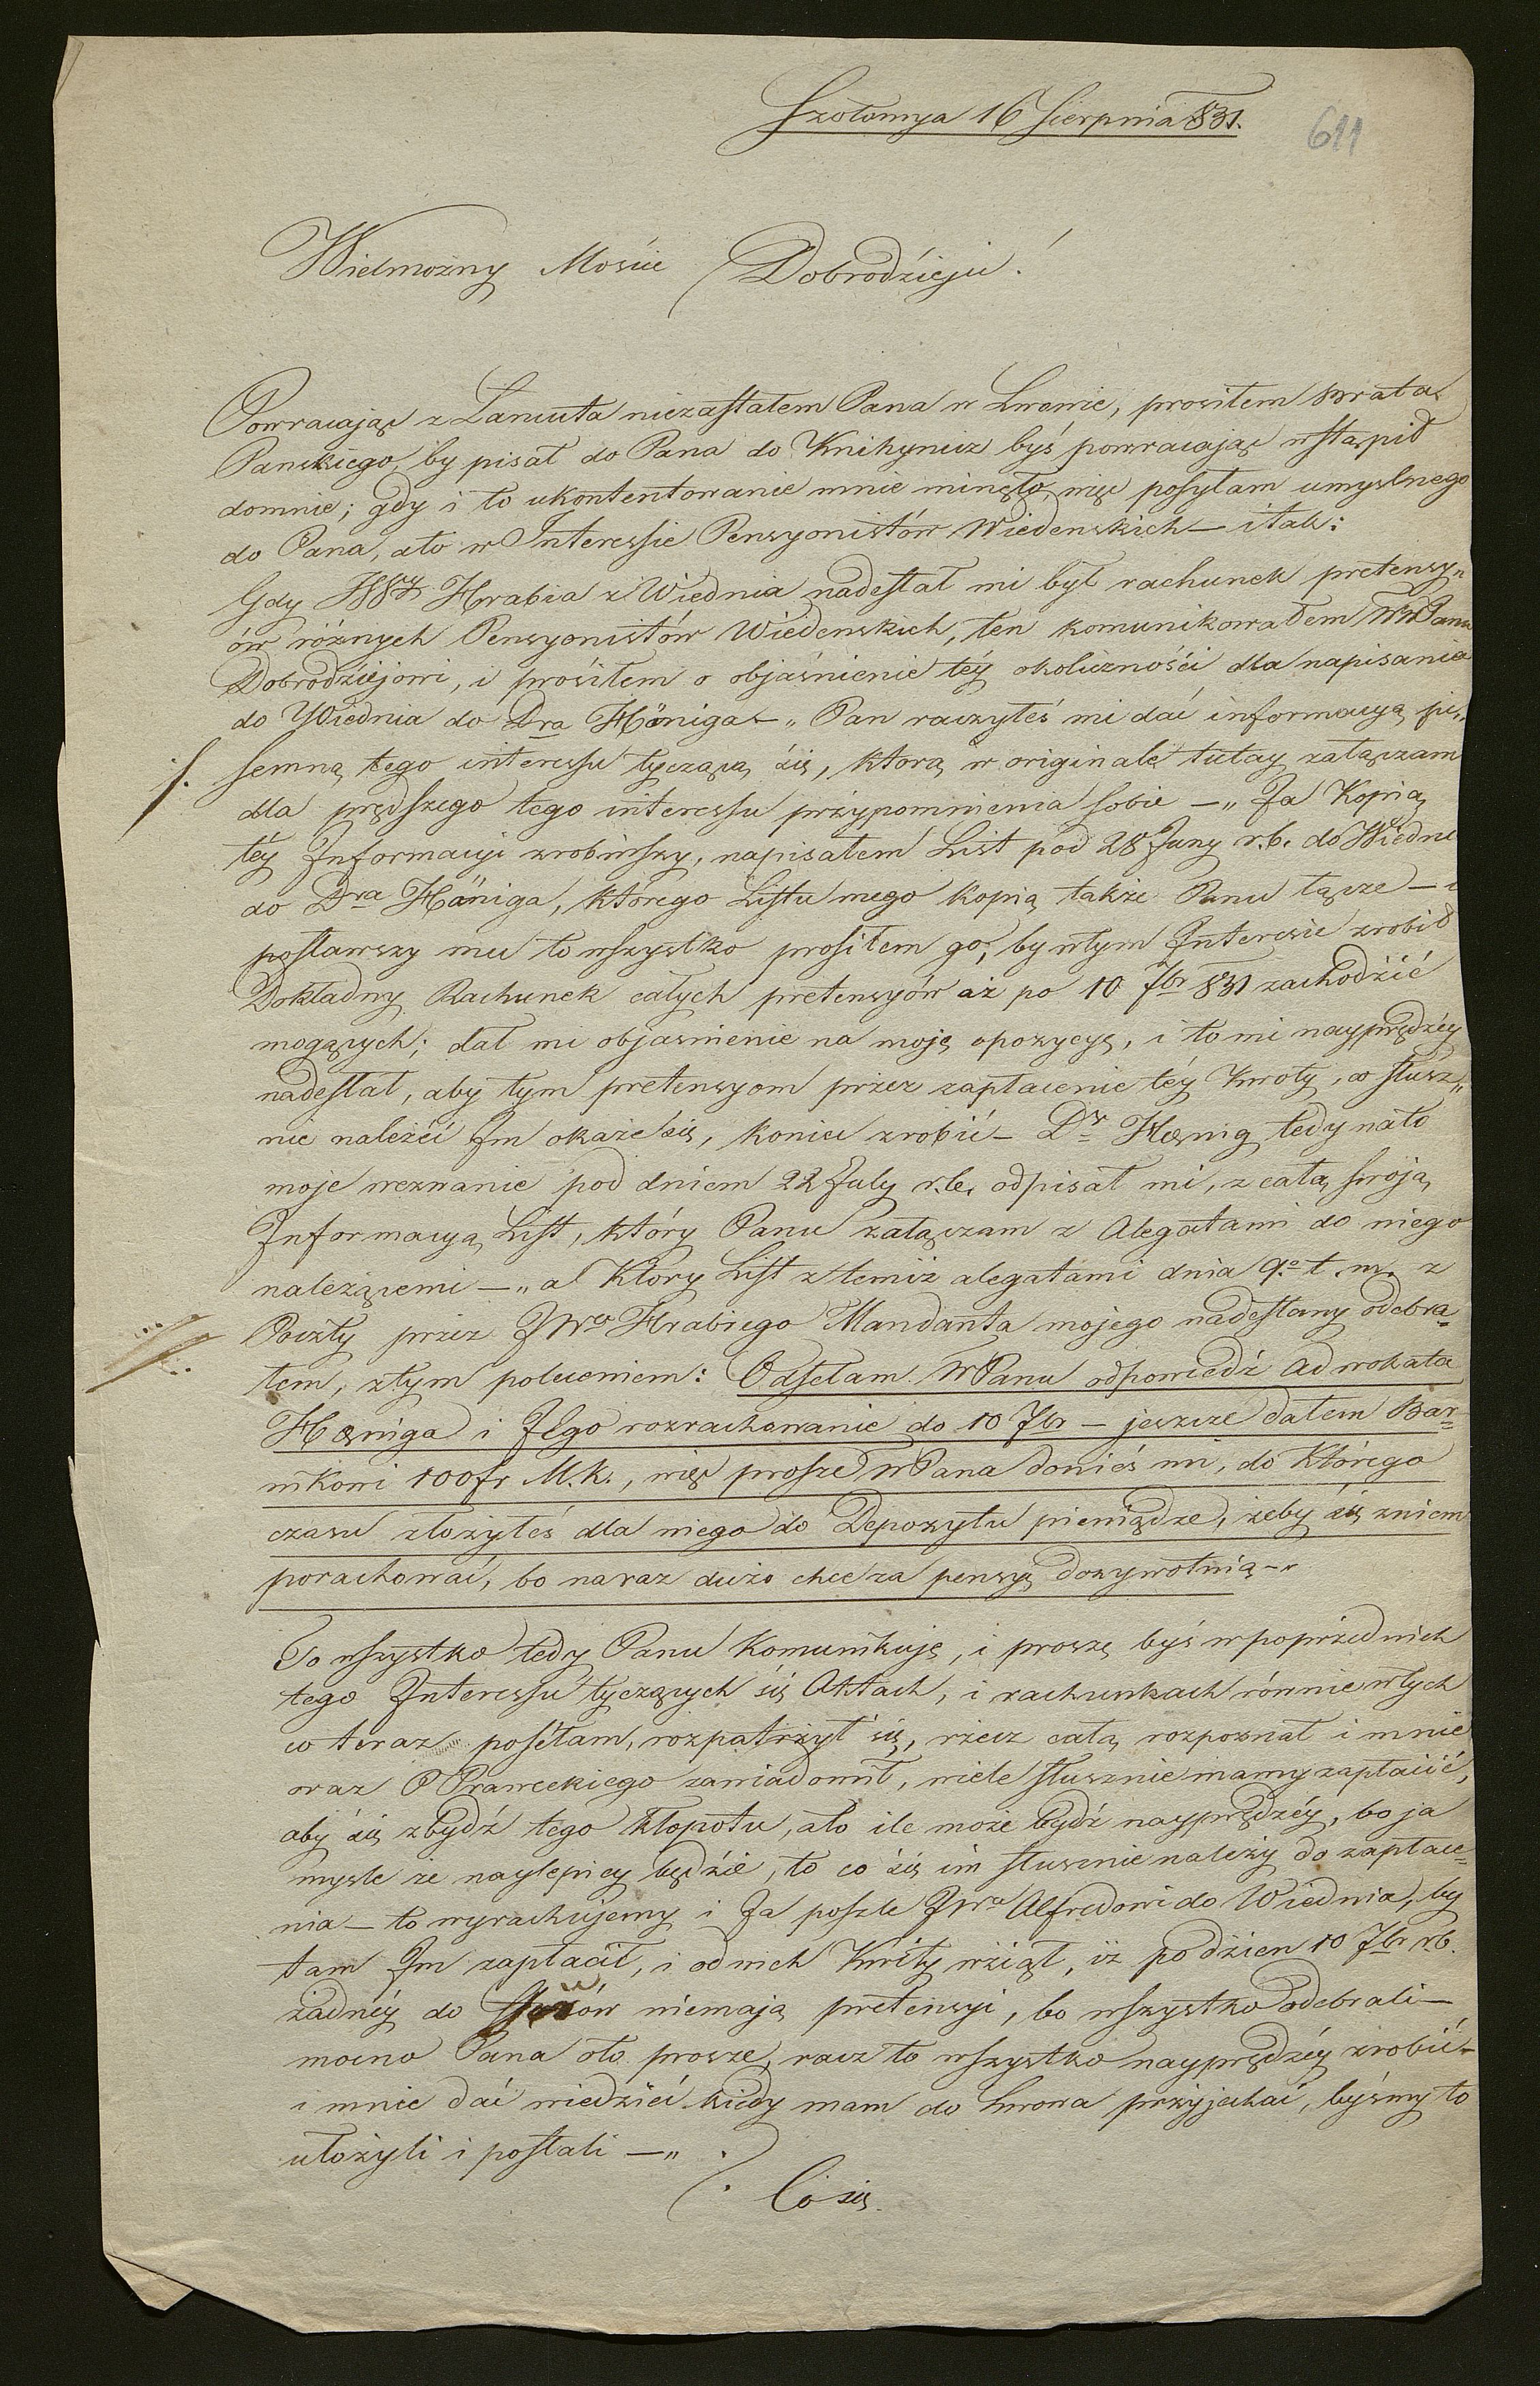 Szołomya 16 Sierpnia 831.
611
Wielmożny Mosćie Dobrodźieju!
Powracaiąc z Łancuta niezastałem Pana w Lwowie, prosiłem Brata
Panskiego, by pisał do Pana do Knihynicz byś powracaiąc wstąpił
domnie; gdy i to ukontentowanie mnie minęło, więc posyłam umyslnego
do Pana, ato w Interessie Pensyonistów Wiedenskich — itak:
Gdy Hrabia z Wiednia nadesłał mi był rachunek pretensy„
ów różnych Pensyonistów Wiedenskich, ten komunikowałem WPanu
Dobrodźiejowi, i prosiłem o objaśnienie téy okolicznośći dla napisania
do Wiednia do Dra Höniga — „Pan raczyłeś mi dać informacyą pi„
/. semną tego interessu tyczącą śię, którą w originale tutay załączam
dla prędszego tego interessu przypomnienia sobie — „Ja Kopią
téy Informacyi zrobiwszy, napisałem List pod 28 Juny r.b. do Wiedn
do Dra Höniga, którego Listu mego kopią także Panu łączę — i
posławszy mu to wszystko prosiłem go, by wtym Interesie zrobił
Dokładny Rachunek całych pretensyów aż po 10 7br 831 zachodźić
mogących; dał mi objasnienie na moję opozycyę, i to mi nayprędzéy
nadesłał, aby tym pretensyom przez zapłacenie téy Kwoty, co słusz„
nie należéć Im okaże się, koniec zrobić — Dr Hœnig tedy nato
moje wezwanie pod dniem 22 July r.b. odpisał mi, z całą swoją
Informacyą List, który Panu załączam z Alegatami do niego
należącemi — „a Który List z temiż alegatami dnia 9o t. m. z
Poczty przez JWo Hrabiego Mandanta mojego nadesłany odebra=
//. łem, ztym poleceniem: Odsełam WPanu odpowiedź Adwokata
Hœniga i JEgo rozrachowanie do 10 7br — jeszcze dałem Bar=
nikowi 100fr M.k., więc proszę WPana donieś mi, do Którego
czasu złożyłeś dla niego do Depozytu pieniądze, żeby śię zniem
porachować, bo naraz dużo chce za pensyą dożywotnią —„
To wszystko tedy Panu Komunikuję, i proszę byś wpoprzednich
tego Interessu tyczących śię Aktach, i rachunkach równie wtych
co teraz posełam, rozpatrzył się, rzecz całą rozpoznał i mnie
oraz P Praweckiego zawiadomił, wiele słusznie mamy zapłacić,
aby śię zbydź tego kłopotu, ato ile może bydź nayprędzéy, bo ja
mysle że naylepiey będźie, to co śię im słusznie należy do zapłace=
nia — to wyrachujemy i Ja poszle JWo Alfredowi do Wiednia, by
tam Im zapłacił, i od nich Kwity wźiął, iż po dźien 10 7br r.b.
żadnéy do niemają pretensyi, bo wszystko odebrali —
mocno Pana oto prosze, racz to wszystko nayprędzéy zrobić —
i mnie dać wiedźieć kiedy mam do Lwowa przyjechać, byśmy to
ułożyli i posłali —„
Co się